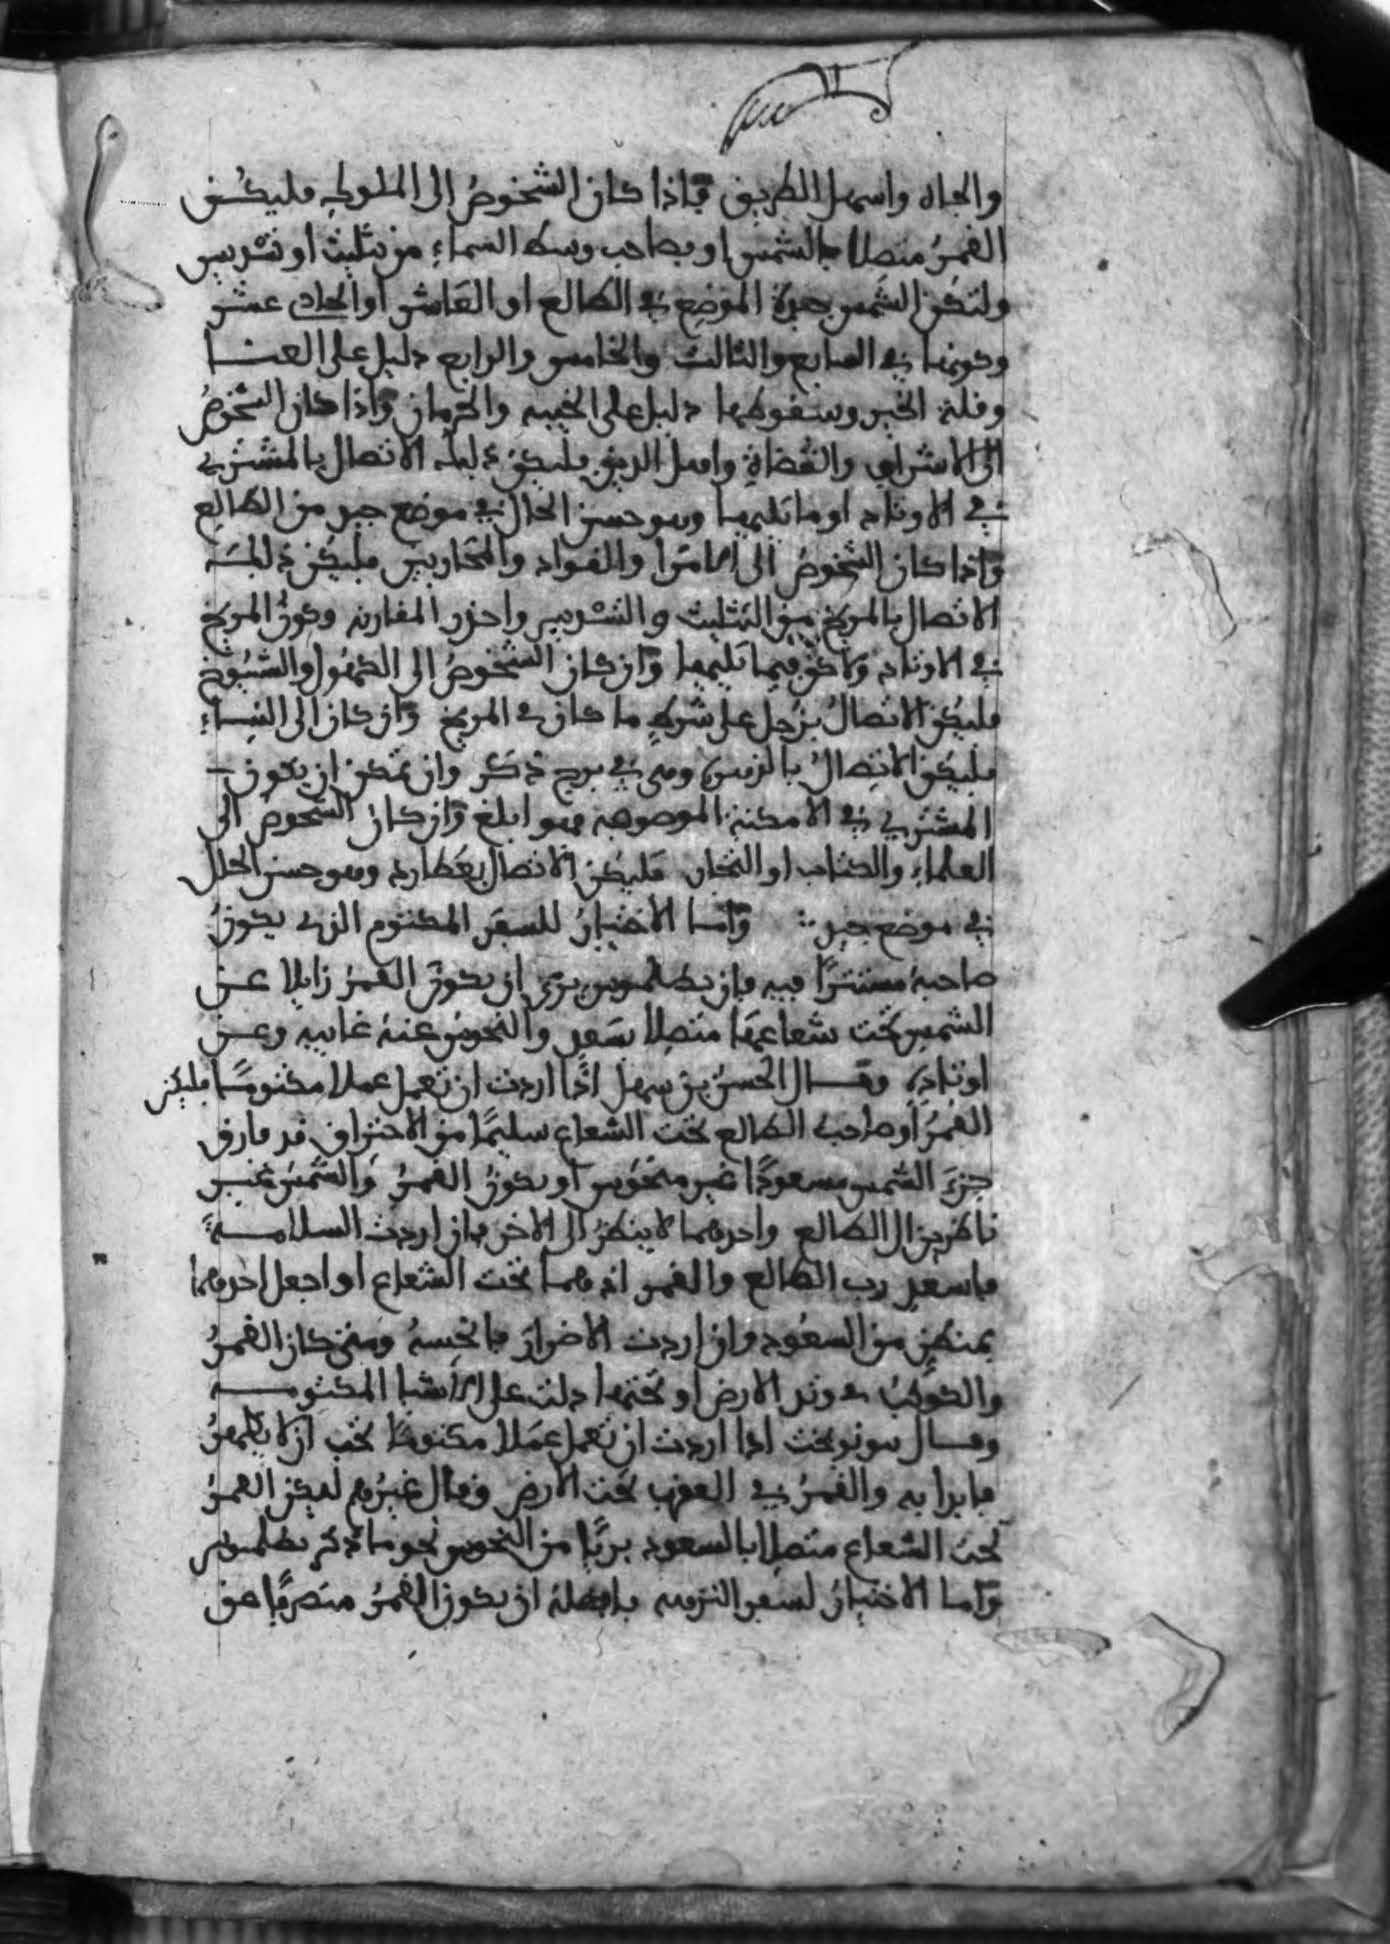 والجاه واسهل الطريق وّاذا كان الشخوصُ الى الملوك فليكُـن
القمرُ متصِلا بالشمس او بصاحب وسط السماءِ من تثليث او تسْديس
ولتكن الشمس جيدة الموضِع في الطالع او العَاشر او الحادى عشر
وكونها في السابع والثالث والخامس والرابع دليل على العنــا
وقلة الخير وسقوطها دليل على الخيبه والحرمان وّاذا كان الشخوصُ
الى الاشراف والقُضاةِ واهل الدين فليكن دليله الاتصال بالمشتري
في الاوتاد او ما يَليها وهو حسن الحال في موضع جيد من الطالع
وّاذا كان الشخوصُ الى الامَرا والقواد والمحَاربين فليكن دليله
الاتصال بالمريخ من التثليث والتسْديس واحذر المقارنه وكونُ المريخ
في الاوتاد ولاكن فيما يَليها وّان كان الشخوصُ الى الكهُول والشيُوخ
فليكن الاتصالُ بزُحل على شرطِ ما كان في المريخ وّان كان الى النِساءِ
فليكن الاتِصالُ بالزهرة وهى في برج ذكَر وان يمكن ان يكون
المشتري في الامكنة الموصوفه فهو ابلغ وّان كان الشخوصُ الى
العلماءِ والكتاب او التجار فليكن الاتصال بعُطارد وهو حسن الحال
في موضع جيد وّامـا الاختيارُ للسفر المكتوم الذي يكونُ
صاحبهُ مستترًا فيه فان بطلميوس يرى ان يكون القمرُ زايلا عـن
الشمس تحت شعاعها متصِلا بسَعد والنحوسُ عنهُ غايبه وعـن
اوتادِه وقـال الحسنُ بن سهل اذا اردت ان تعمل عملا مكتومًـا فليكن
القمرُ او صاحبُ الطالع تحت الشعاع سليمًا من الاحتراق قد فارق
جزءَ الشمس مسعودًا غير منحُوس او يكونُ القمرُ والشمسُ غيـر
ناظرين الى الطالع واحدهما لا ينظرُ الى الاخر فان اردت السلامـة
فاسعِد رب الطالع والقمر اذ هما تحت الشعاع او اجعل احدهما
بمنظرٍ من السعُود وان اردت الاضرار فانحِسهُ ومتى كان القمرُ
والكوكبُ في وتد الارض او تحتها دلت على الاشيا المكتومــه
وقـال نوبخت اذا اردت ان تعمل عمَلا مكتومًا تحب ان لا يظهرُ
فابدا به والقمرُ في العقرب تحت الارض وقال غيرُهم ليكن القمرُ
تحت الشعاع متصِلا بالسعود بريًا من النحوس نحو ما ذكر بطلميوس
وّامـا الاختيارُ لسفر النزهه فافضلهُ ان يكون القمرُ منصرفًا من